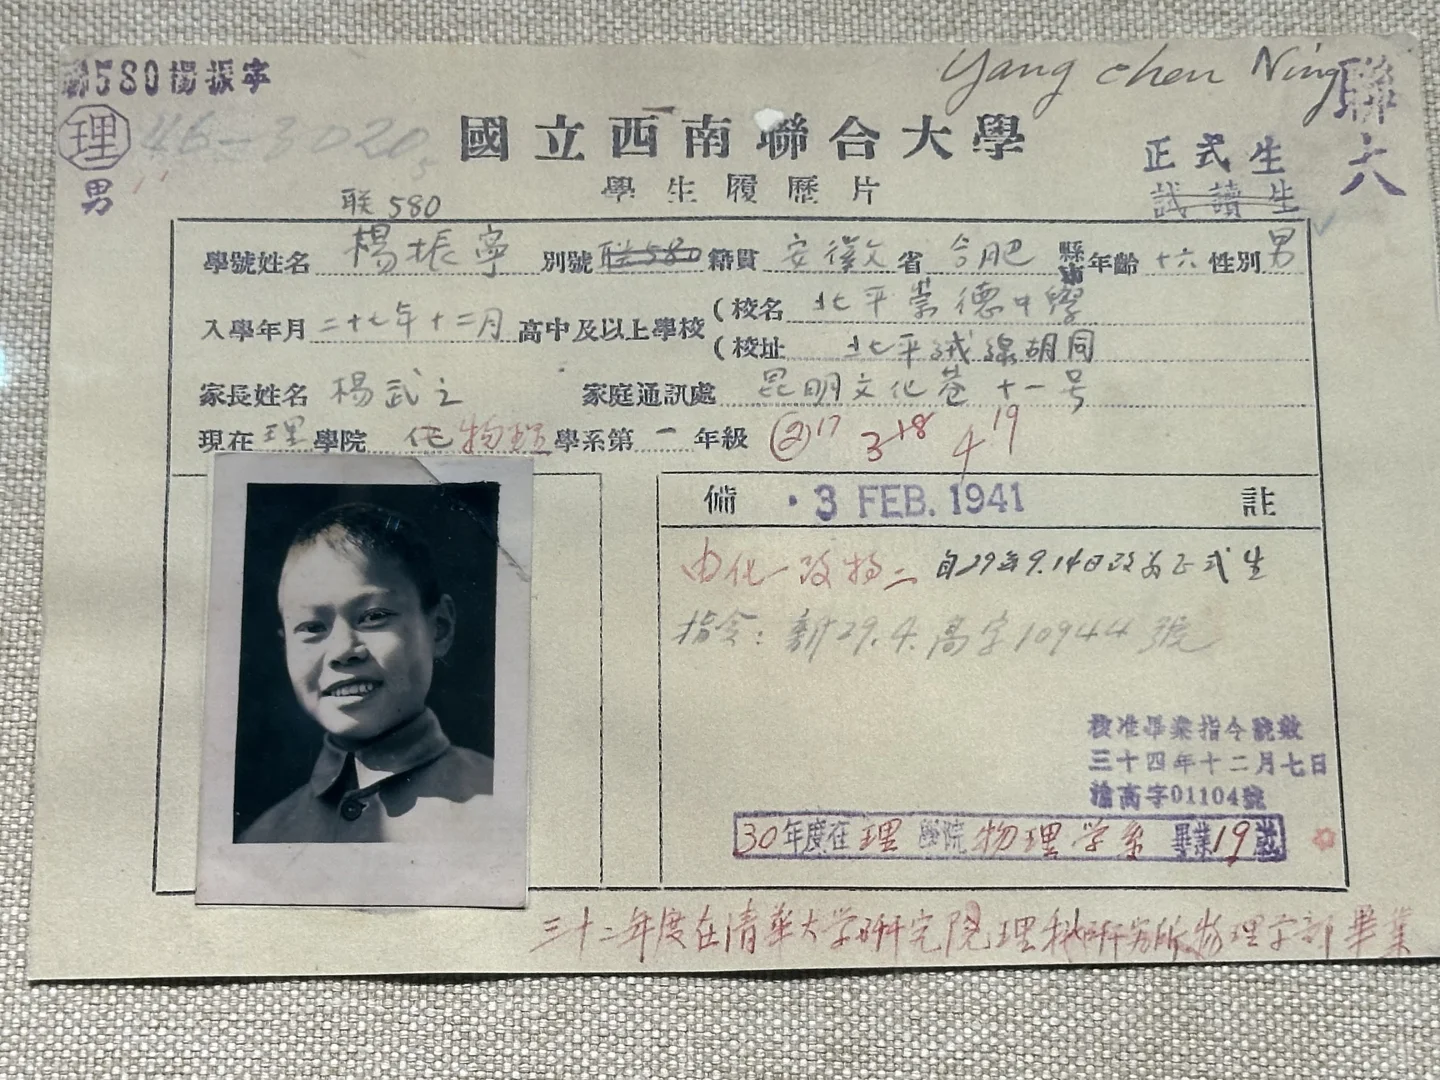 聯580楊振寧
Yang Chen Ning
聯六
理
46-2020
男
國立西南聯合大學
學生履歷片
正式生
試讀生
联580
學號姓名 楊振寧 別號 联580 籍貫 安徽省 合肥 縣市 年齡 十六 性別 男
入學年月 二十七年十二月 高中及以上學校 (校名 北平崇德中學
(校址 北平絨線胡同
家長姓名 楊武之 家庭通訊處 昆明文化巷十一号
現在 理 學院 化 物理 學系第 一 年級 ②17 3 18 4 19
備 3 FEB. 1941 註
由化一改物二 自29年9.14日改为正式生
指令:新29.4.高字10944號
核准畢業指令號數
三十四年十二月七日
渝高字01104號
30年度在理學院物理学系畢業19歲
三十二年度在清華大学研究院理科研究所物理学部畢業